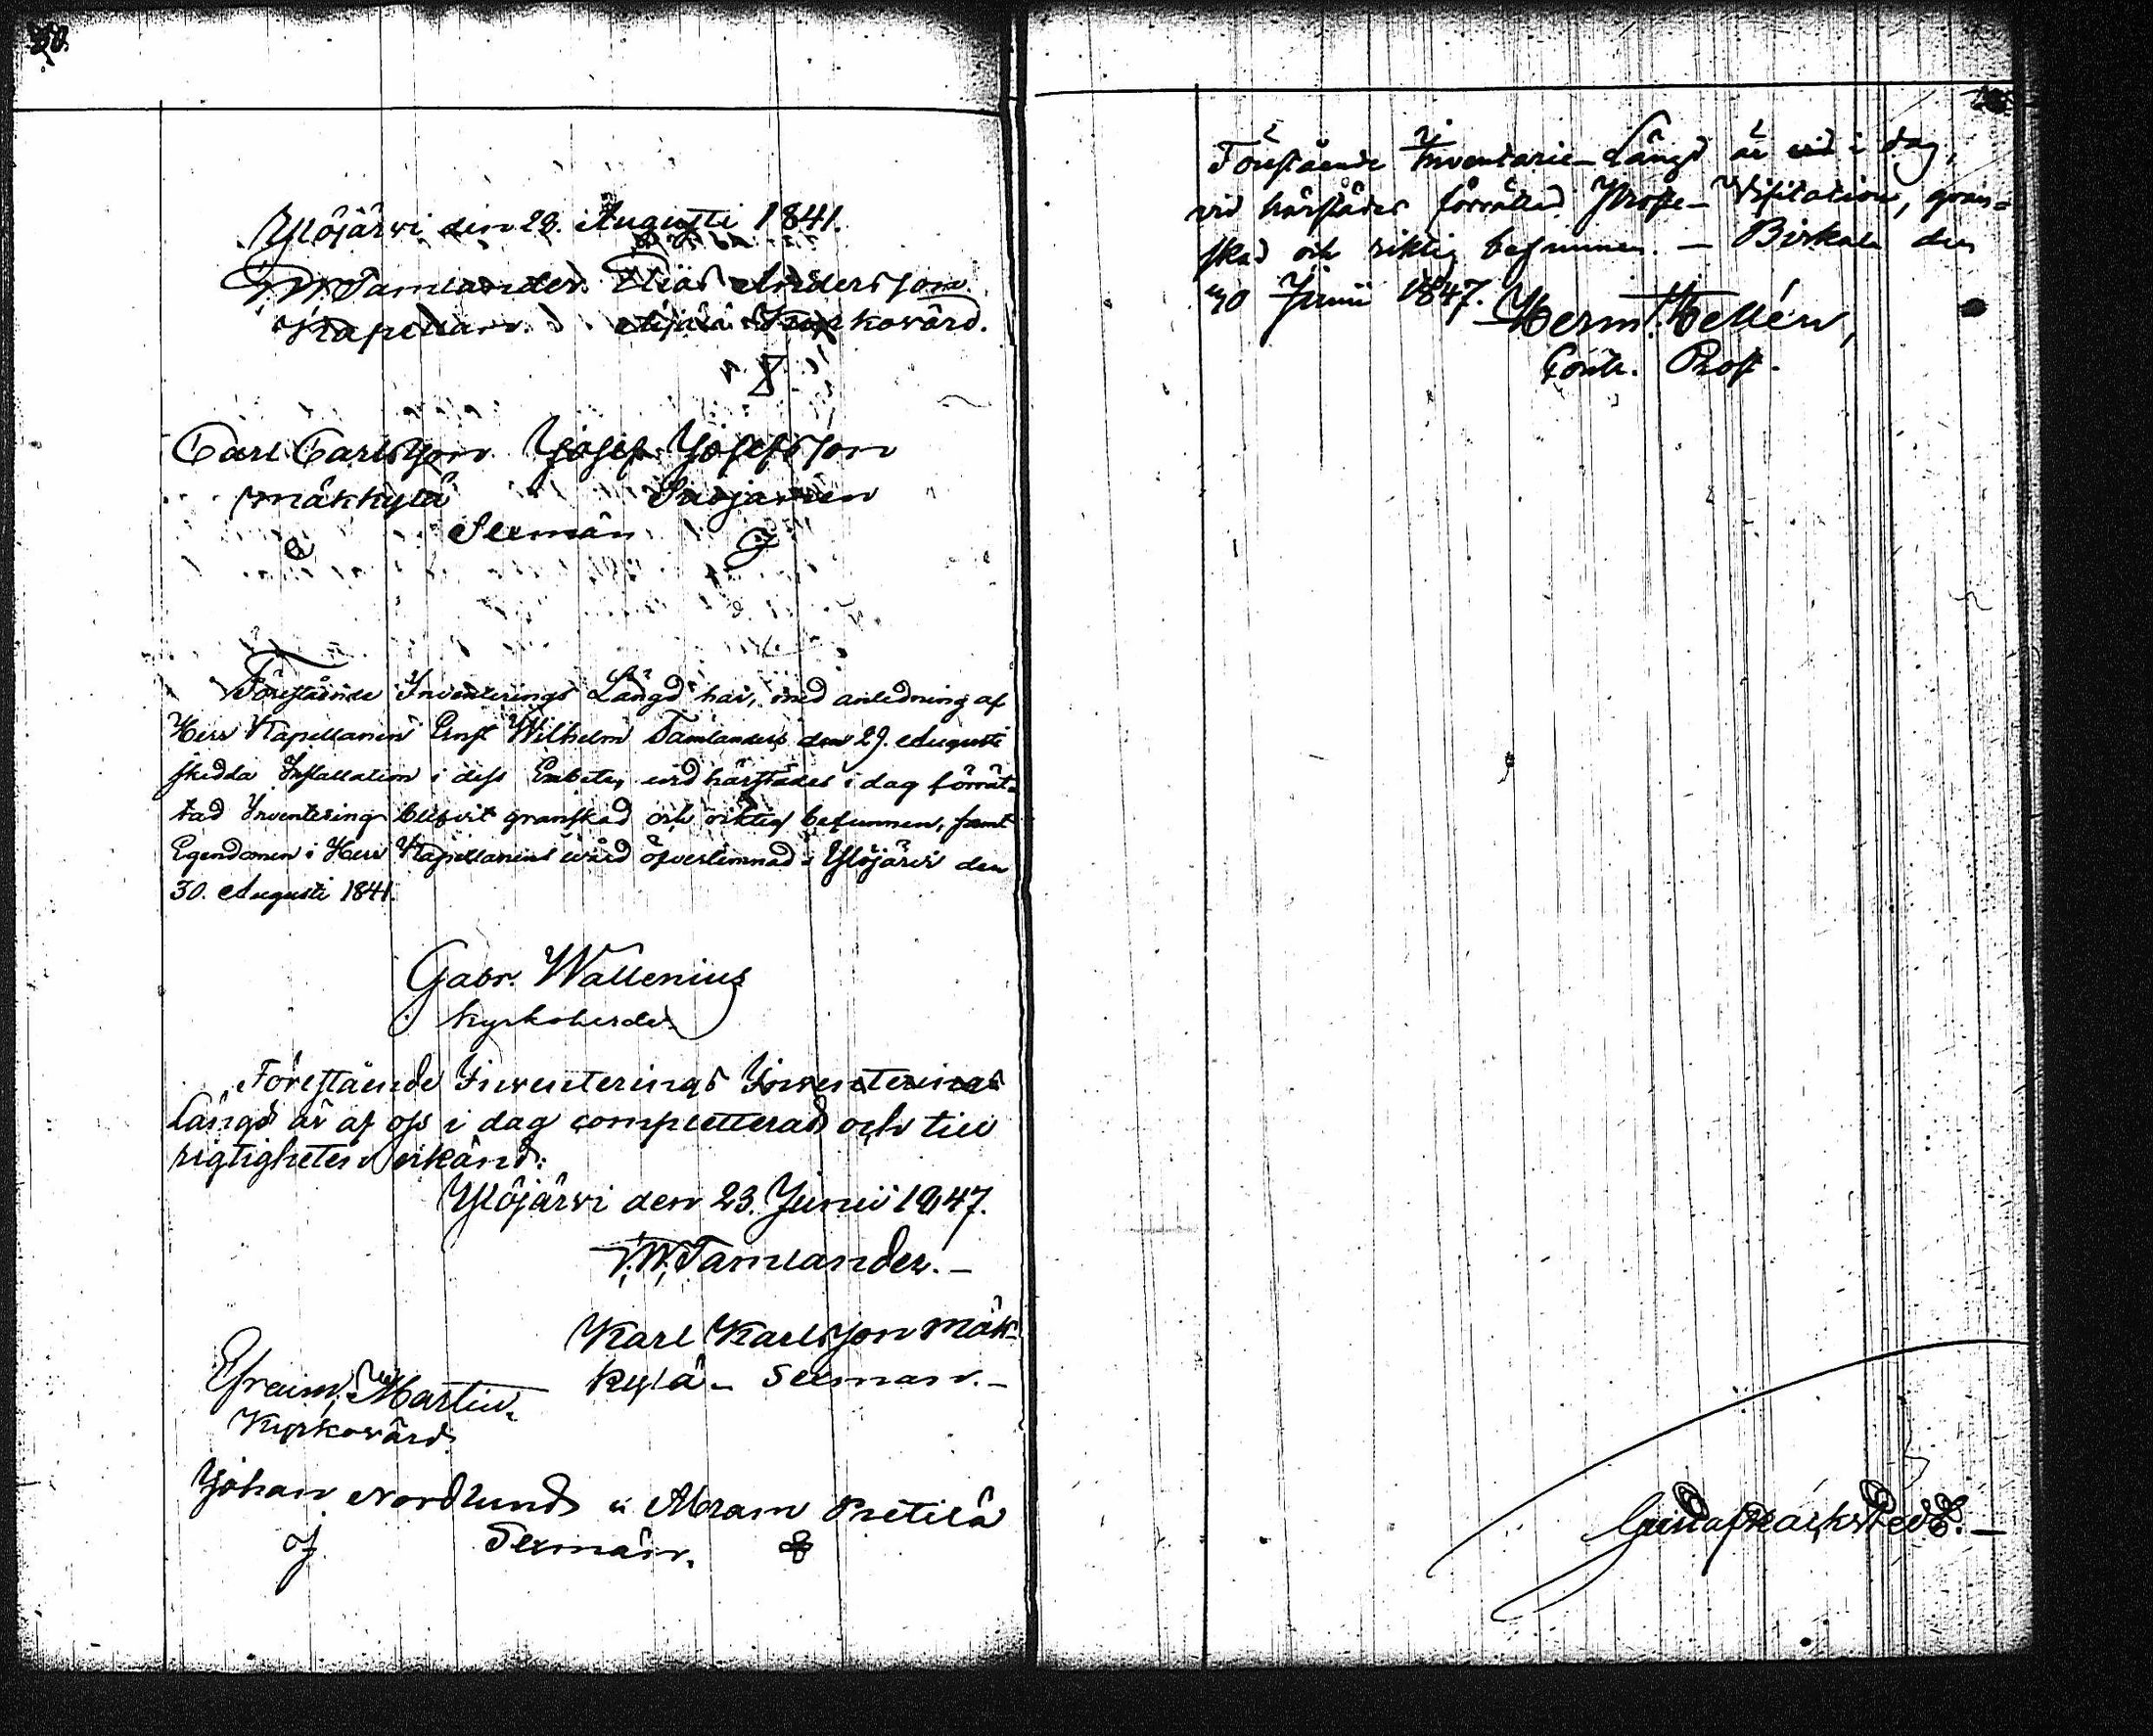 Ylöjärvi den 29. Augusti 1841.
E. W. Tamlander. Elias Andersson.
Kapellan. Kyrkovärd.
Carl Carlsson Josef Josefsson
Mäkkylä
Sexmän
Förestående Inventerings Längd har, med anledning af
Herr Kapellanen Ernst Wilhelm Tamlanders den 29. Augusti
skedda Installation i dess Embete, wid härstädes i dag förrät-
tad Inventering blifvit granskad och riktig befunnen, samt
Egendomen i Herr Kapellanens wård öfverlemnad i Ylöjärvi den
30. Augusti 1841.
Gabr. Wallenius
Kyrkoherde
Förestående Inventerings Inventerings
Längd är af oss i dag completterad och till
rigtigheten erkänd:
Ylöjärvi den 23. Junii 1847.
E. W. Tamlander. —
Karl Karlsson Mäk-
kylä — Sexman. —
Efraim Martin
Kyrkovärd
Johan Nordlund Abram Pietilä
Sexmän.
Förestående Inventarie-Längd är wid i dag,
vid härstädes förrättad Prosts-Visitation, gran-
skad och riktig befunnen. — Birkala den
30 Junii 1847. Herm. Hellén,
Contr. Prost.